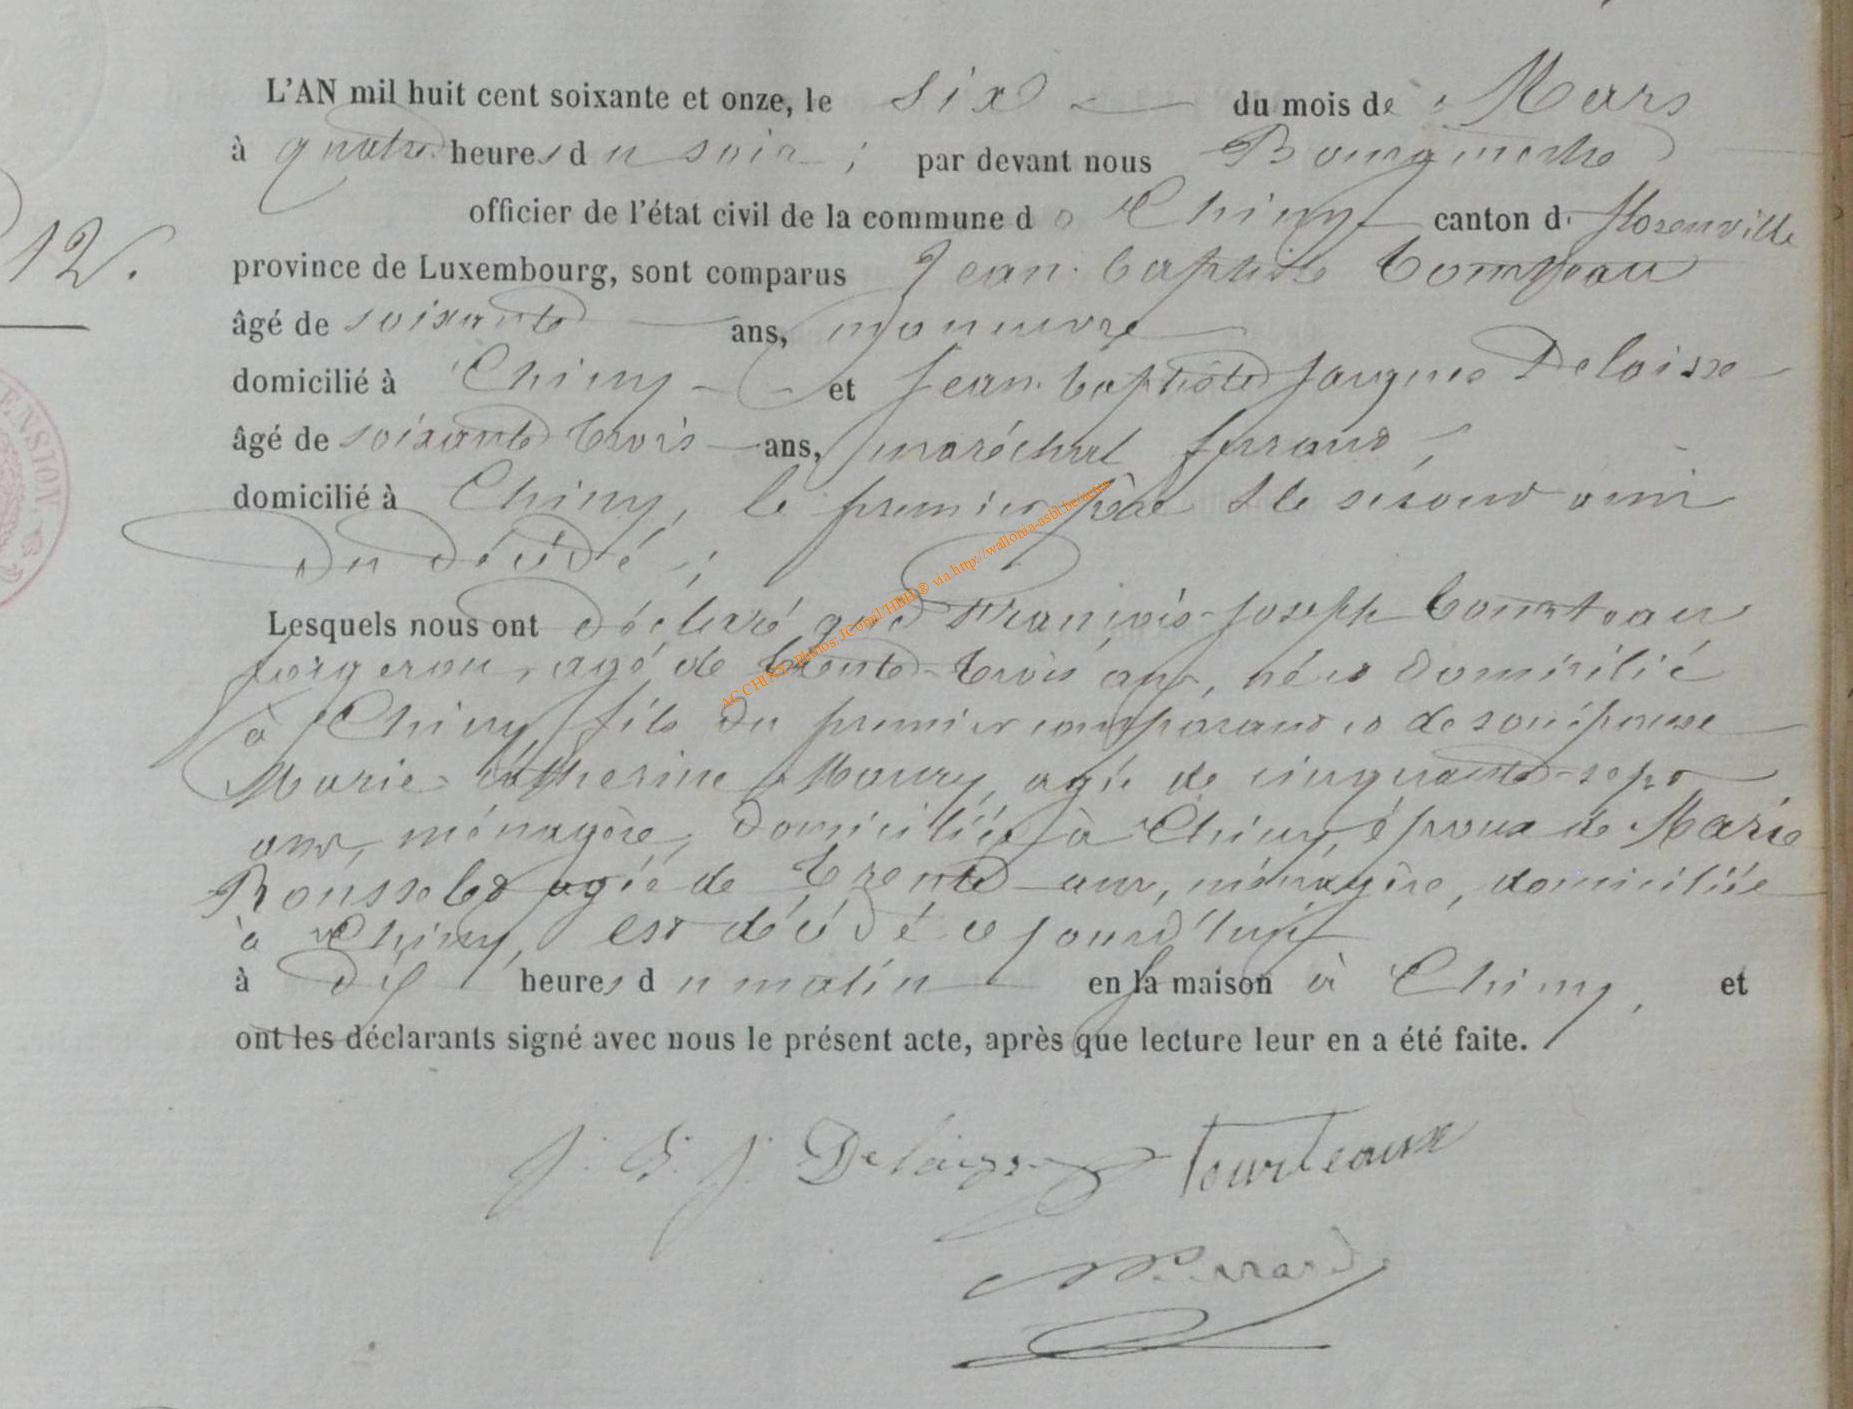 L'AN mil huit cent soixante et onze, le six du mois de Mars
à quatre heures du soir ; par devant nous Bourgmestre
officier de l'état civil de la commune de Chiny canton de Florenville
12.
province de Luxembourg, sont comparus Jean-baptiste Tourteau
âgé de soixante ans, manœuvre
domicilié à Chiny et Jean-baptiste Jacques Delaisse
âgé de soixante trois ans, maréchal ferrant,
domicilié à Chiny, le premier père & le second ami
du décédé ;
Lesquels nous ont déclaré que François-Joseph Tourteau
forgeron, agé de trente-trois ans, né et domicilié
à Chiny, fils du premier comparant et de son épouse
Marie-Catherine Maury, agée de cinquante-sept
ans, ménagère, domiciliée à Chiny, époux de Marie
Rousselet agée de trente ans, ménagère, domiciliée
à Chiny, est décédé ce jourd'hui
à dix heures du matin en sa maison à Chiny, et
ont les déclarants signé avec nous le présent acte, après que lecture leur en a été faite.
J. B. J. Delaisse Tourteaux
ENSION.
AC CHINY Photos JCopal/HBH ® via http://wallonia-asbl.be/actes